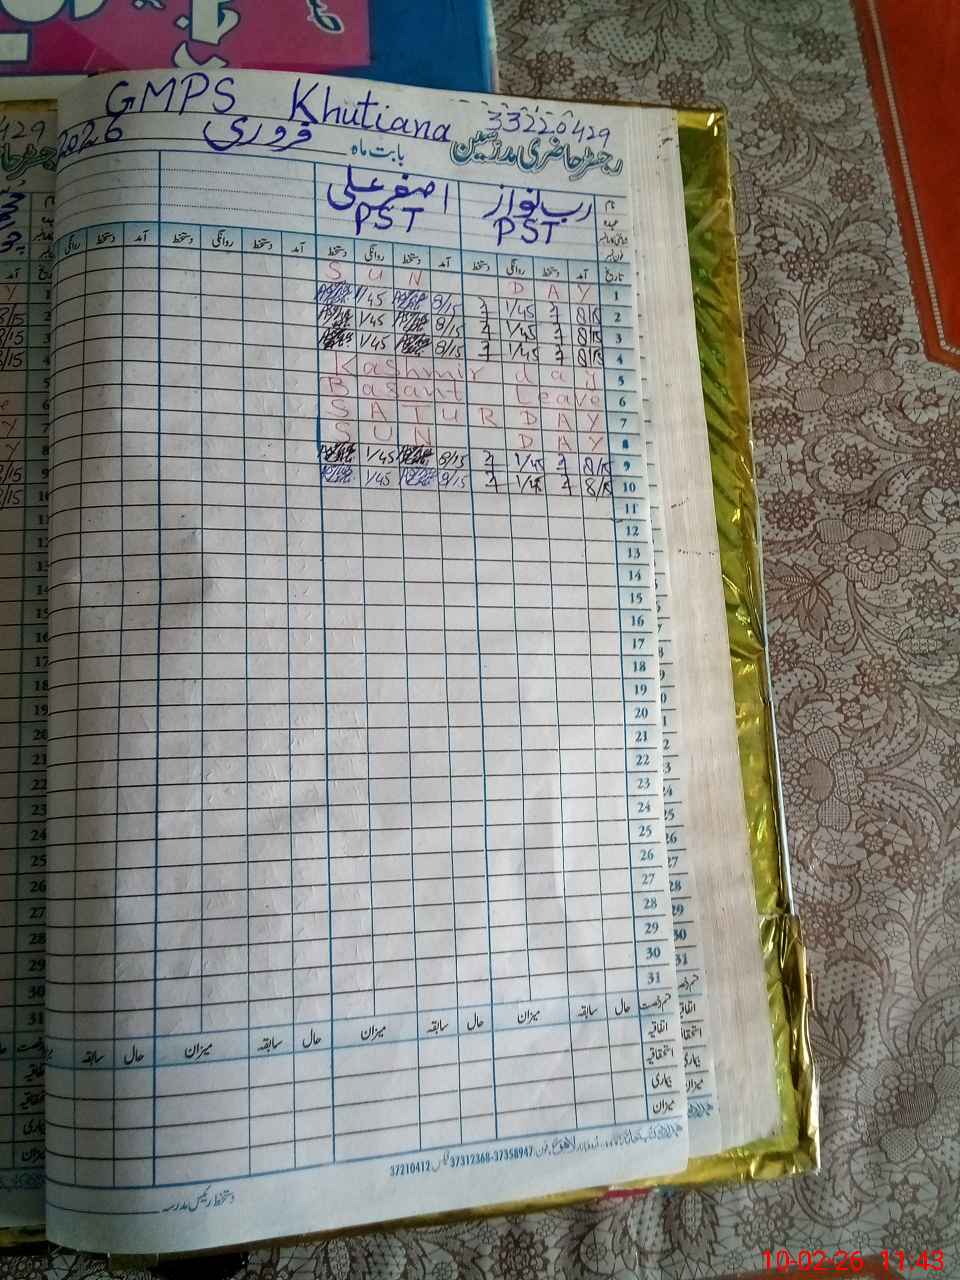 GMPS Khutiana 33220429
2026 فروری بابت ماہ رجسٹر حاضری مدرسین
نام رب نواز اصغر علی
عہدہ PST PST
تاریخ آمد دستخط روانگی دستخط آمد دستخط روانگی دستخط آمد دستخط روانگی دستخط آمد دستخط روانگی
1 SUN DAY
2 8/15 1/45 8/15 1/45
3 8/15 1/45 8/15 1/45
4 8/15 1/45 8/15 1/45
5 Kashmir day
6 Basant Leave
7 SATURDAY
8 SUN DAY
9 8/15 1/45 8/15 1/45
10 8/15 1/45 8/15 1/45
11
12
13
14
15
16
17
18
19
20
21
22
23
24
25
26
27
28
29
30
31
قسم رخصت حال سابقہ میزان حال سابقہ میزان حال سابقہ میزان حال سابقہ
اتفاقیہ
استحقاقیہ
بیماری
میزان
37312368-37358947 فیکس 37210412
دستخط رئیس مدرسہ
10-02-26 11:43